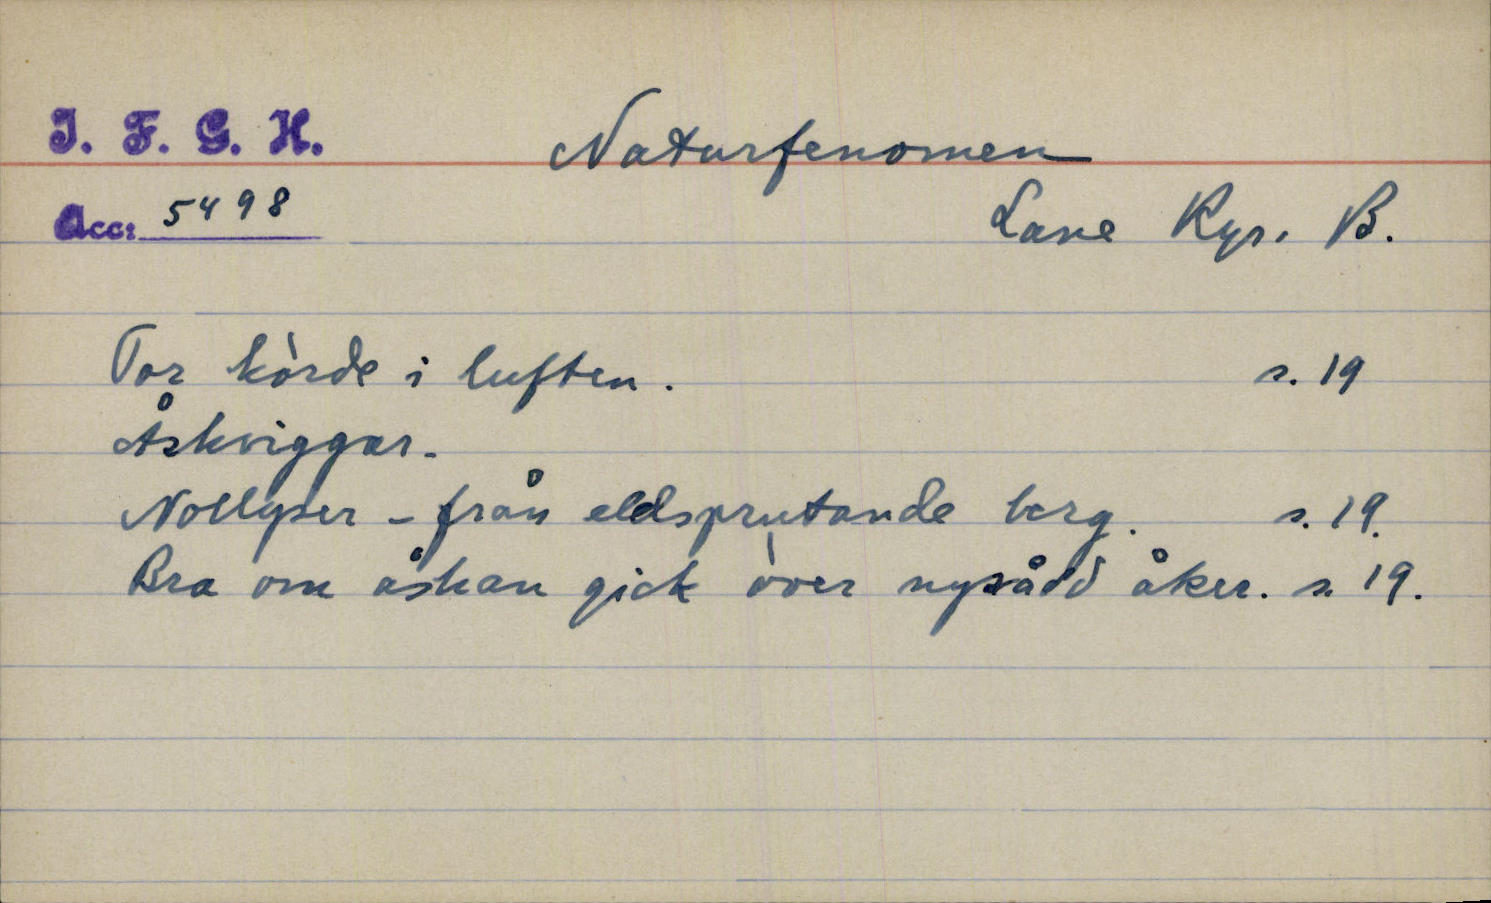 I. F. G. H.
Naturfenomen
Acc: 5498
Lane Ryr. B.
Tor körde i luften. s. 19
Åskviggar.
Nollyser - från eldsprutande berg. s. 19.
Bra om åskan gick över nysådd åker. s. 19.